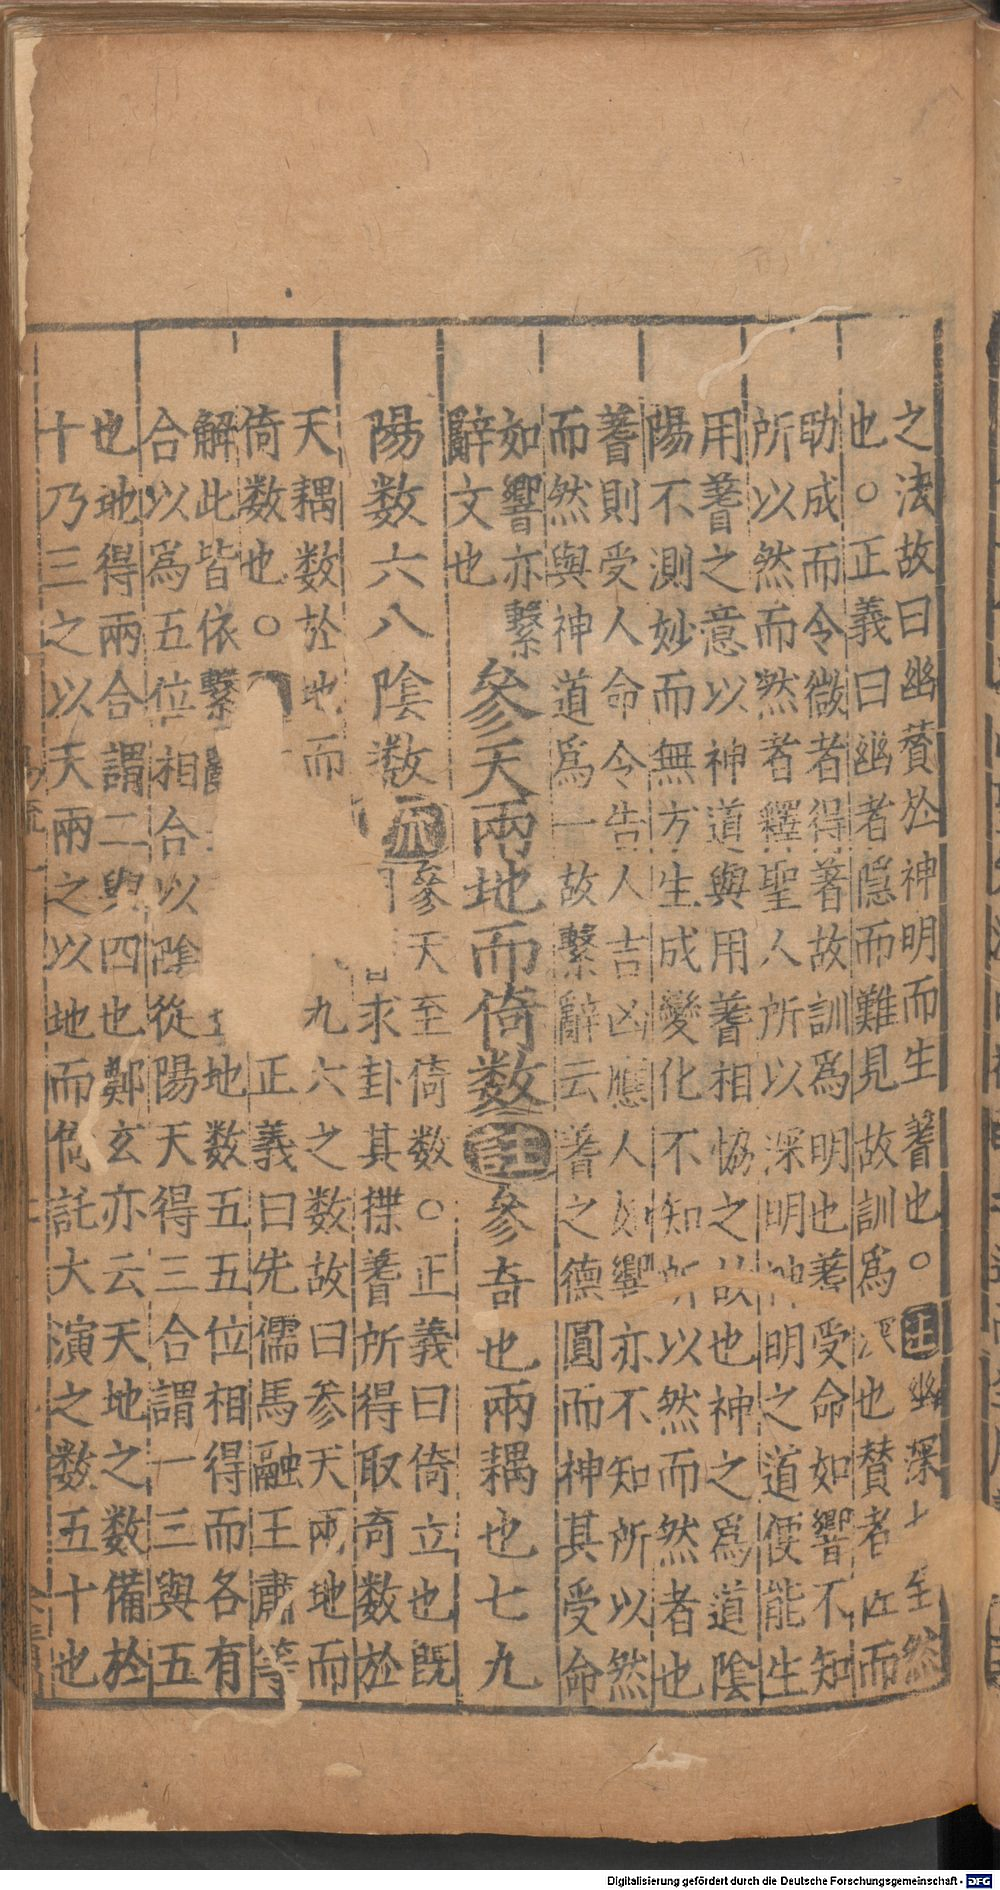 之法故曰幽賛於神明而生蓍也○注幽深 至然
也○正義曰幽者隱而難見故訓爲 也賛者 而
助成而令微者得著故訓爲明也蓍受命如響不知
所以然而然者釋聖人所以深明神明之道便能生
用蓍之意以神道與用蓍相協之故也神之爲道陰
陽不測妙而無方生成變化不知所以然而然者也
蓍則受人命令告人吉凶應人如響亦不知所以然
而然與神道爲一故繫辭云蓍之德圓而神其受命
如響亦繫
辭文也
參天兩地而倚数 註 參竒也兩耦也七九
陽数六八陰数 疏 參天至倚数○正義曰倚立也旣
求卦其揲蓍所得取奇数於
天耦数於地而 九六之数故曰參天兩地而
倚数也○ 正義曰先儒馬融王肅等
解此皆依繫 地数五五位相得而各有
合以爲五位相合以陰從陽天得三合謂一三與五
也地得兩合謂二與四也鄭玄亦云天地之数備於
十乃三之以天兩之以地而倚託大演之数五十也
Digitalisierung gefördert durch die Deutsche Forschungsgemeinschaft - DFG